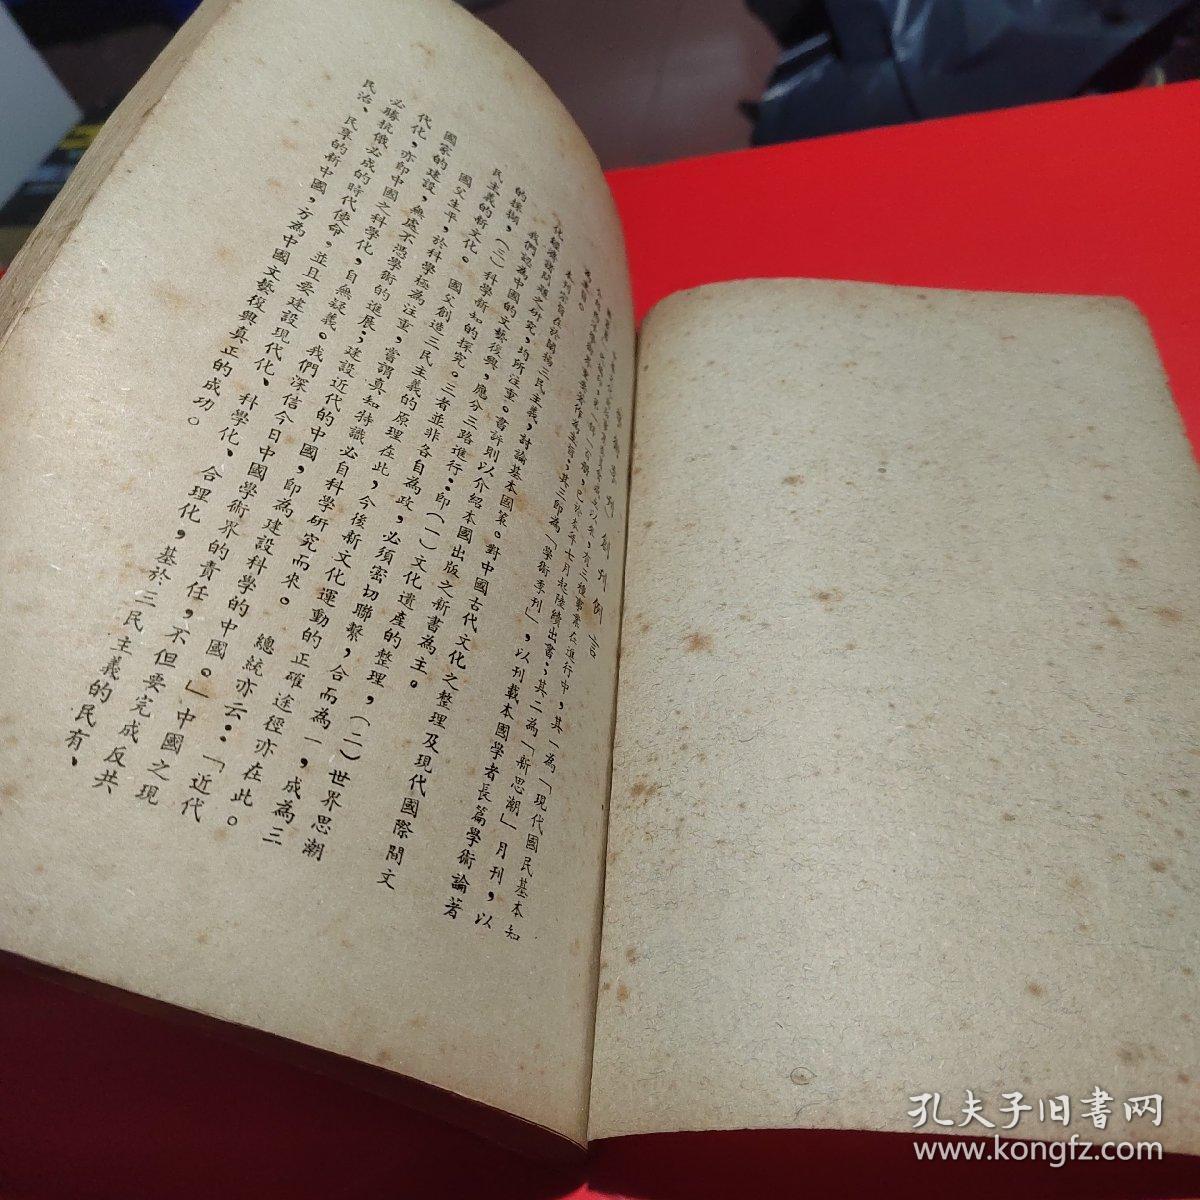 學術季刊創刊例言
有三種事業在進行中，其一為「現代國民基本知
已於本年七月起陸續出書；其二為「新思潮」月刊，以
為要旨；其三即為「學術季刊」，以刊載本國學者長篇學術論著
為專旨。
本刊宗旨在於闡揚三民主義，討論基本國策。對中國古代文化之整理及現代國際間文
化經濟諸問題之研究，均所注重。書評則以介紹本國出版之新書為主。
我們認為中國的文藝復興，應分三路進行：即（一）文化遺產的整理，（二）世界思潮
的採擷，（三）科學新知的探究。三者並非各自為政，必須密切聯繫，合而為一，成為三
民主義的新文化。國父創造三民主義的原理在此，今後新文化運動的正確途徑亦在此。
國父生平，於科學極為注重，嘗謂真知特識必自科學研究而來。總統亦云：「近代
國家的建設，無處不憑學術的進展；建設近代的中國，即為建設科學的中國。」中國之現
代化，亦即中國之科學化，自無疑義。我們深信今日中國學術界的責任，不但要完成反共
必勝抗俄必成的時代使命，並且要建設現代化、科學化、合理化，基於三民主義的民有、
民治、民享的新中國，方為中國文藝復興真正的成功。
孔夫子旧书网
www.kongfz.com